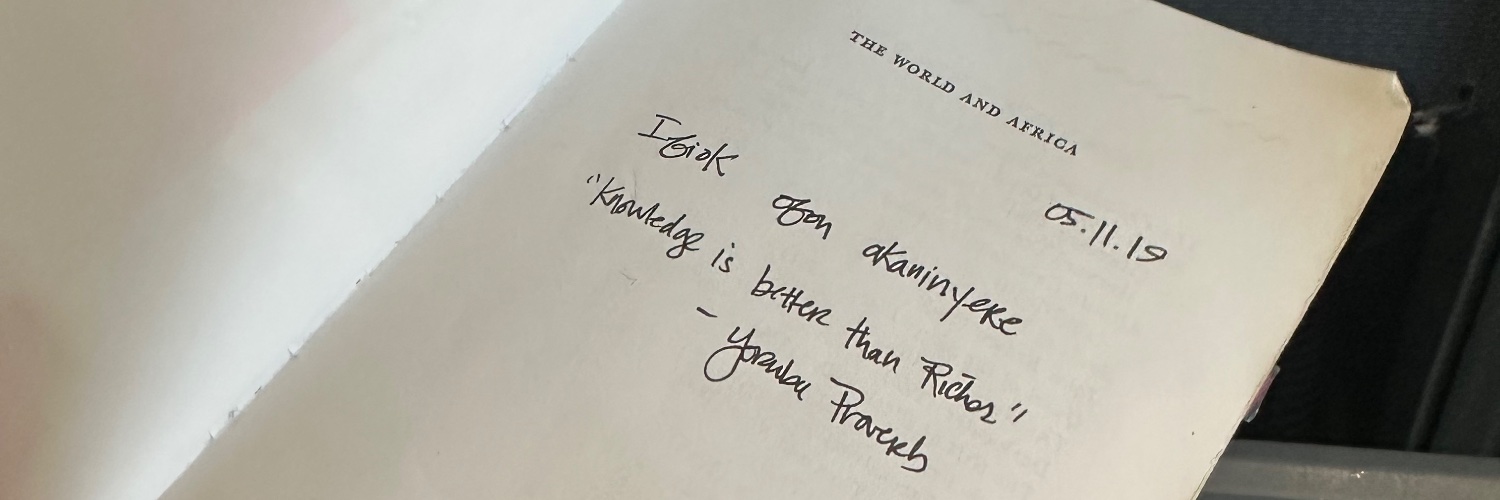 THE WORLD AND AFRICA
05.11.19
akaninyere
"Knowledge is better than Riches"
- Yoruba Proverb